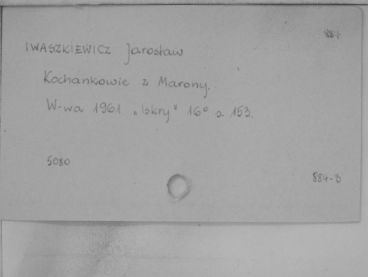 884
IWASZKIEWICZ Jarosław
Kochankowie z Marony.
W-wa 1961 „Iskry" 16° s. 153.
5080
884-B